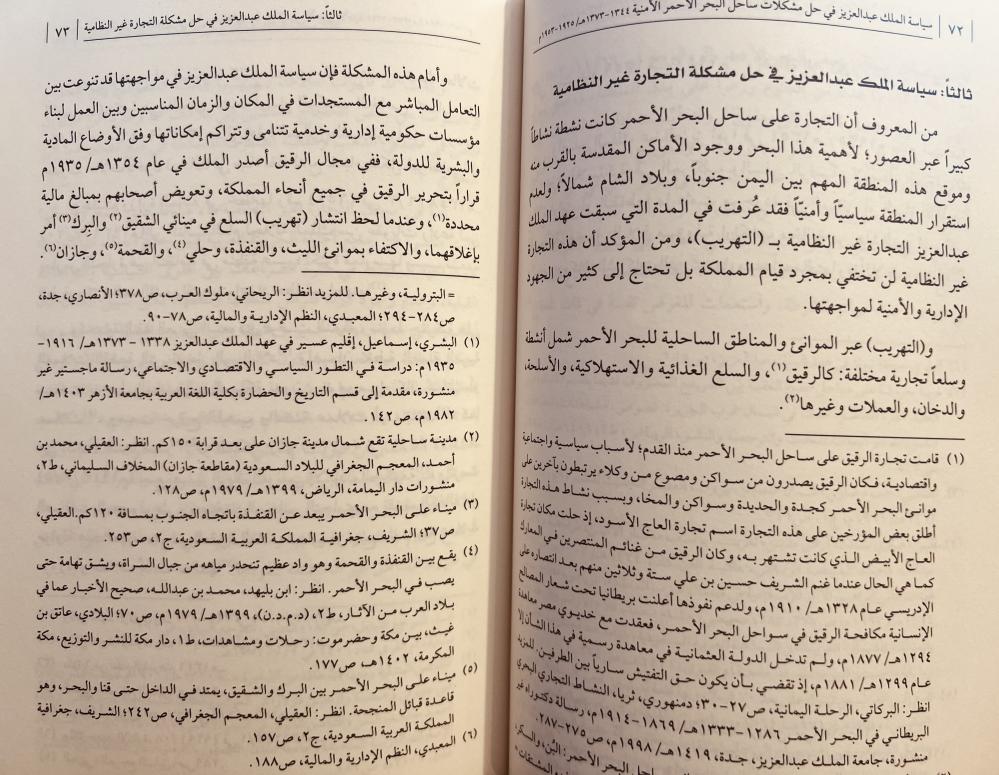 ٧٢ | سياسة الملك عبدالعزيز في حل مشكلات ساحل البحر الأحمر الأمنية ١٣٤٤-١٣٧٣هـ/ ١٩٢٥-١٩٥٣م
ثالثاً: سياسة الملك عبدالعزيز في حل مشكلة التجارة غير النظامية
من المعروف أن التجارة على ساحل البحر الأحمر كانت نشطة نشاطاً
كبيراً عبر العصور؛ لأهمية هذا البحر ووجود الأماكن المقدسة بالقرب منه
وموقع هذه المنطقة المهم بين اليمن جنوباً، وبلاد الشام شمالاً؛ ولعدم
استقرار المنطقة سياسيّاً وأمنيّاً فقد عُرفت في المدة التي سبقت عهد الملك
عبدالعزيز التجارة غير النظامية بـ (التهريب)، ومن المؤكد أن هذه التجارة
غير النظامية لن تختفي بمجرد قيام المملكة بل تحتاج إلى كثير من الجهود
الإدارية والأمنية لمواجهتها.
و(التهريب) عبر الموانئ والمناطق الساحلية للبحر الأحمر شمل أنشطة
وسلعاً تجارية مختلفة: كالرقيق(١)، والسلع الغذائية والاستهلاكية، والأسلحة،
والدخان، والعملات وغيرها(٢).
(١) قامت تجارة الرقيق على ساحل البحر الأحمر منذ القدم؛ لأسباب سياسية واجتماعية
واقتصادية، فكان الرقيق يصدرون من سواكن ومصوع من وكلاء يرتبطون بآخرين على
موانئ البحر الأحمر كجدة والحديدة وسواكن والمخا، وبسبب نشاط هذه التجارة
أطلق بعض المؤرخين على هذه التجارة اسم تجارة العاج الأسود، إذ حلت مكان تجارة
العاج الأبيض الذي كانت تشتهر به، وكان الرقيق من غنائم المنتصرين في المعارك
كما هي الحال عندما غنم الشريف حسين بن علي ستة وثلاثين منهم بعد انتصاره على
الإدريسي عام ١٣٢٨هـ/ ١٩١٠م، ولدعم نفوذها أعلنت بريطانيا تحت شعار المصالح
الإنسانية مكافحة الرقيق في سواحل البحر الأحمر، فعقدت مع خديوي مصر معاهدة
١٢٩٤هـ/ ١٨٧٧م، ولم تدخل الدولة العثمانية في معاهدة رسمية في هذا الشأن إلا
عام ١٢٩٩هـ/ ١٨٨١م، إذ تقضي بأن يكون حق التفتيش سارياً بين الطرفين. للمزيد
انظر: البركاتي، الرحلة اليمانية، ص٢٧-٣٠؛ دمنهوري، ثريا، النشاط التجاري البحري
البريطاني في البحر الأحمر ١٢٨٦-١٣٣٣هـ/ ١٨٦٩-١٩١٤م، رسالة دكتوراه غير
منشورة، جامعة الملك عبدالعزيز، جدة، ١٤١٩هـ/ ١٩٩٨م، ص٢٧٥-٢٨٧.
البحر الأحمر: البُن، والسكر،
ثالثاً: سياسة الملك عبدالعزيز في حل مشكلة التجارة غير النظامية | ٧٣
وأمام هذه المشكلة فإن سياسة الملك عبدالعزيز في مواجهتها قد تنوعت بين
التعامل المباشر مع المستجدات في المكان والزمان المناسبين وبين العمل لبناء
مؤسسات حكومية إدارية وخدمية تتنامى وتتراكم إمكاناتها وفق الأوضاع المادية
والبشرية للدولة، ففي مجال الرقيق أصدر الملك في عام ١٣٥٤هـ/ ١٩٣٥م
قراراً بتحرير الرقيق في جميع أنحاء المملكة، وتعويض أصحابهم بمبالغ مالية
محددة(١)، وعندما لحظ انتشار (تهريب) السلع في مينائي الشقيق(٢) والبِرك(٣) أمر
بإغلاقهما، والاكتفاء بموانئ الليث، والقنفذة، وحلي(٤)، والقحمة(٥)، وجازان(٦).
= البترولية، وغيرها. للمزيد انظر: الريحاني، ملوك العرب، ص٣٧٨؛ الأنصاري، جدة،
ص٢٨٤-٢٩٤؛ المعبدي، النظم الإدارية والمالية، ص٧٨-٩٠.
(١) البشري، إسماعيل، إقليم عسير في عهد الملك عبدالعزيز ١٣٣٨ - ١٣٧٣هـ/ ١٩١٦-
١٩٣٥م: دراسة في التطور السياسي والاقتصادي والاجتماعي، رسالة ماجستير غير
منشورة، مقدمة إلى قسم التاريخ والحضارة بكلية اللغة العربية بجامعة الأزهر ١٤٠٣هـ/
١٩٨٢م، ص١٤٢.
(٢) مدينة ساحلية تقع شمال مدينة جازان على بعد قرابة ١٥٠كم. انظر: العقيلي، محمد بن
أحمد، المعجم الجغرافي للبلاد السعودية (مقاطعة جازان) المخلاف السليماني، ط٢،
منشورات دار اليمامة، الرياض، ١٣٩٩هـ/ ١٩٧٩م، ص١٢٨.
(٣) ميناء على البحر الأحمر يبعد عن القنفذة باتجاه الجنوب بمسافة ١٢٠كم. العقيلي،
ص٣٧؛ الشريف، جغرافية المملكة العربية السعودية، ج٢، ص٢٥٣.
(٤) يقع بين القنفذة والقحمة وهو واد عظيم تنحدر مياهه من جبال السراة، ويشق تهامة حتى
يصب في البحر الأحمر. انظر: ابن بليهد، محمد بن عبدالله، صحيح الأخبار عما في
بلاد العرب من الآثار، ط٢، (د.م.د.ن)، ١٣٩٩هـ/ ١٩٧٩م، ص٧٠؛ البلادي، عاتق بن
غيث، بين مكة وحضرموت: رحلات ومشاهدات، ط١، دار مكة للنشر والتوزيع، مكة
المكرمة، ١٤٠٢هـ، ص١٧٧.
(٥) ميناء على البحر الأحمر بين البرك والشقيق، يمتد في الداخل حتى قنا والبحر، وهو
قاعدة قبائل المنجحة. انظر: العقيلي، المعجم الجغرافي، ص٢٤٢؛ الشريف، جغرافية
المملكة العربية السعودية، ج٢، ص١٥٧.
(٦) المعبدي، النظم الإدارية والمالية، ص١٨٨.